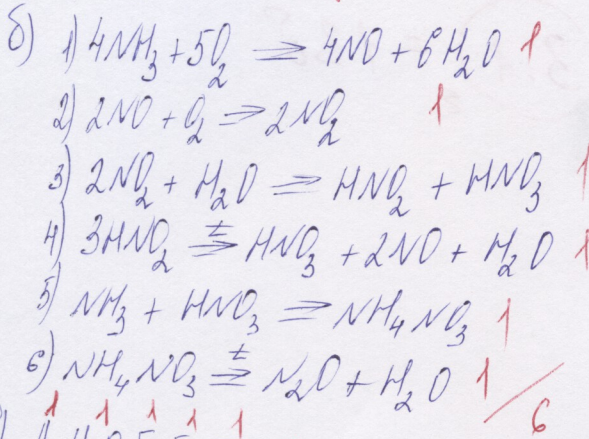 б) 1) 4NH₃ + 5O₂ ⇒ 4NO + 6H₂O 1
2) 2NO + O₂ ⇒ 2NO₂ 1
3) 2NO₂ + H₂O ⇒ HNO₂ + HNO₃ 1
4) 3HNO₂ t⇒ HNO₃ + 2NO + H₂O 1
5) NH₃ + HNO₃ ⇒ NH₄NO₃ 1
6) NH₄NO₃ t⇒ N₂O + H₂O 1 / 6
1 1 1 1 1